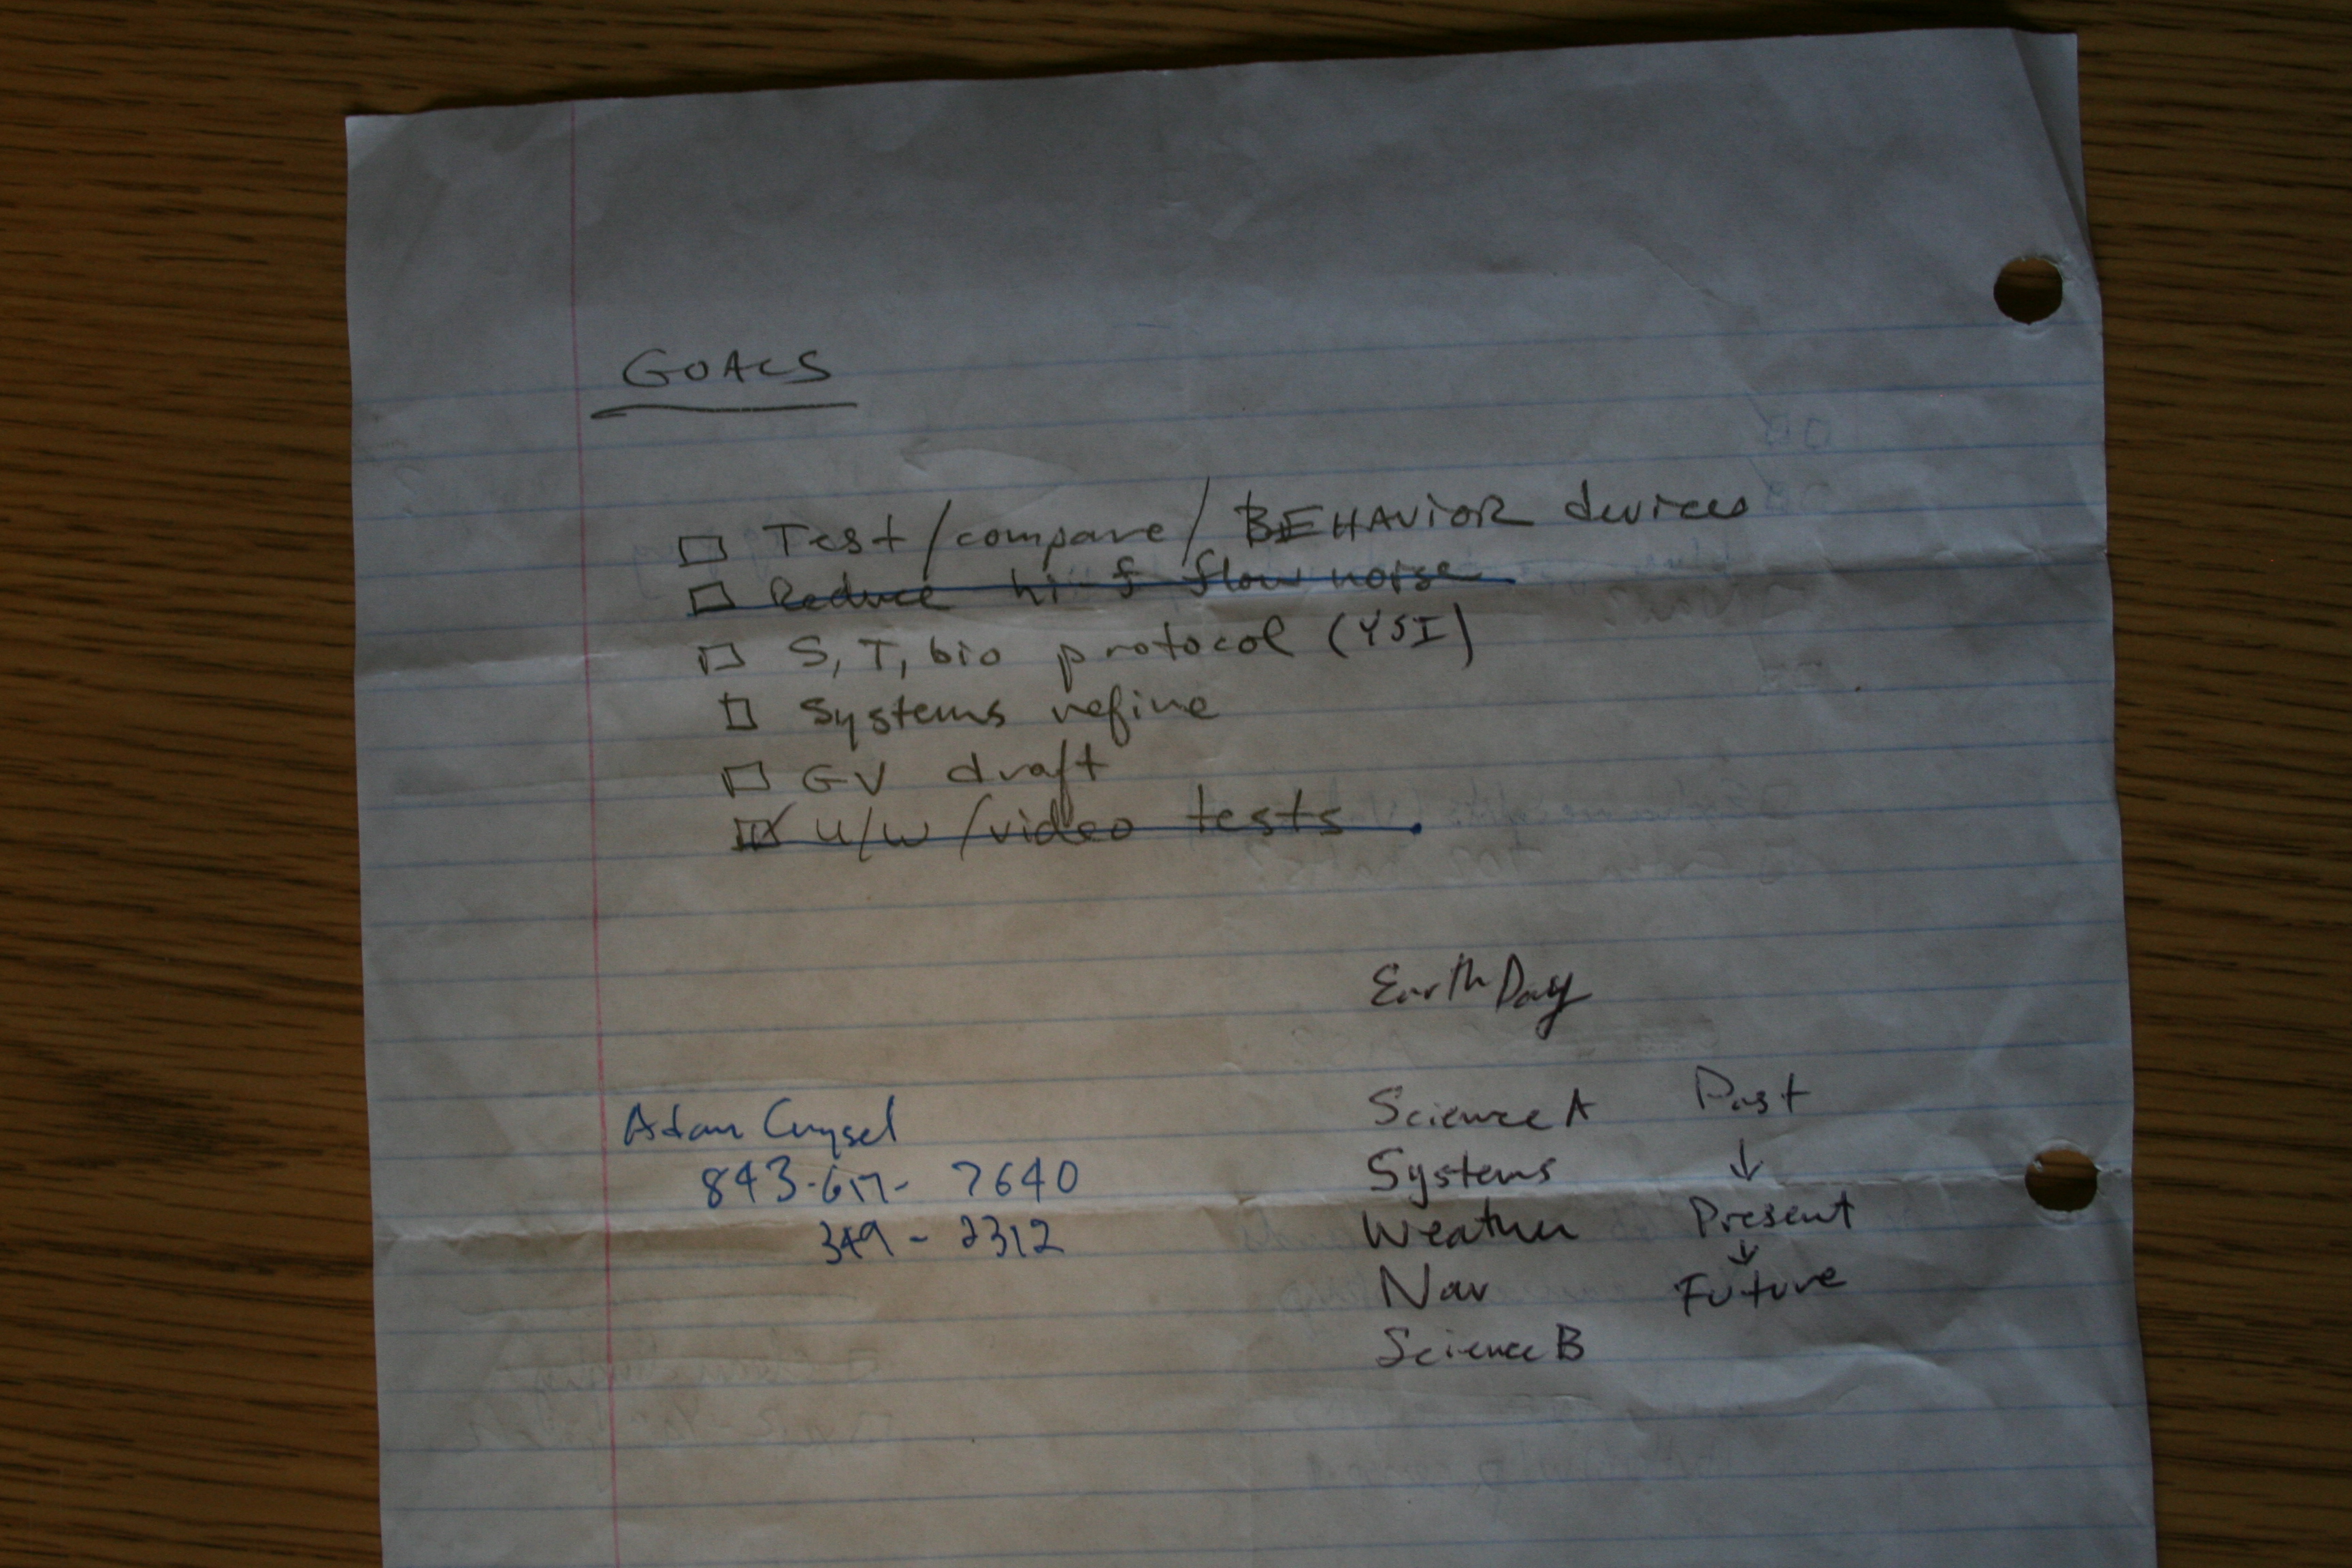 GOALS
Test/compare/BEHAVIOR devices
Reduce hi-f flow noise
S, T, bio protocol (YSI)
Systems refine
GV draft
U/W/video tests
Earth Day
Adam
843-617-7640
349-2312
Science A
Systems
Weather
Nav
Science B
Past
↓
Present
↓
Future